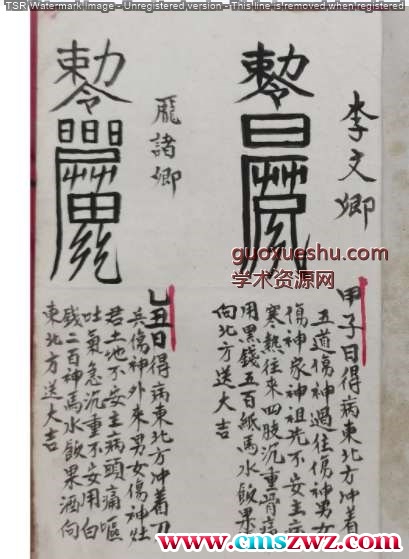 TSR Watermark Image - Unregistered version - This line is removed when registered
李文卿
甲子日得病東北方冲着
五道傷神過往傷神男女
傷神家神祖先不安主病
寒熱往來四肢沉重骨痛
用黑錢五百紙馬水飯果
向北方送大吉
龎諸卿
乙丑日得病東北方冲着刀
兵傷神外來男女傷神灶
君土地不安主病頭痛嘔
吐氣急沉重不安用白
錢二百神馬水飲果酒向
東北方送大吉
guoxueshu.com
学术资源网
www.cmszwz.com